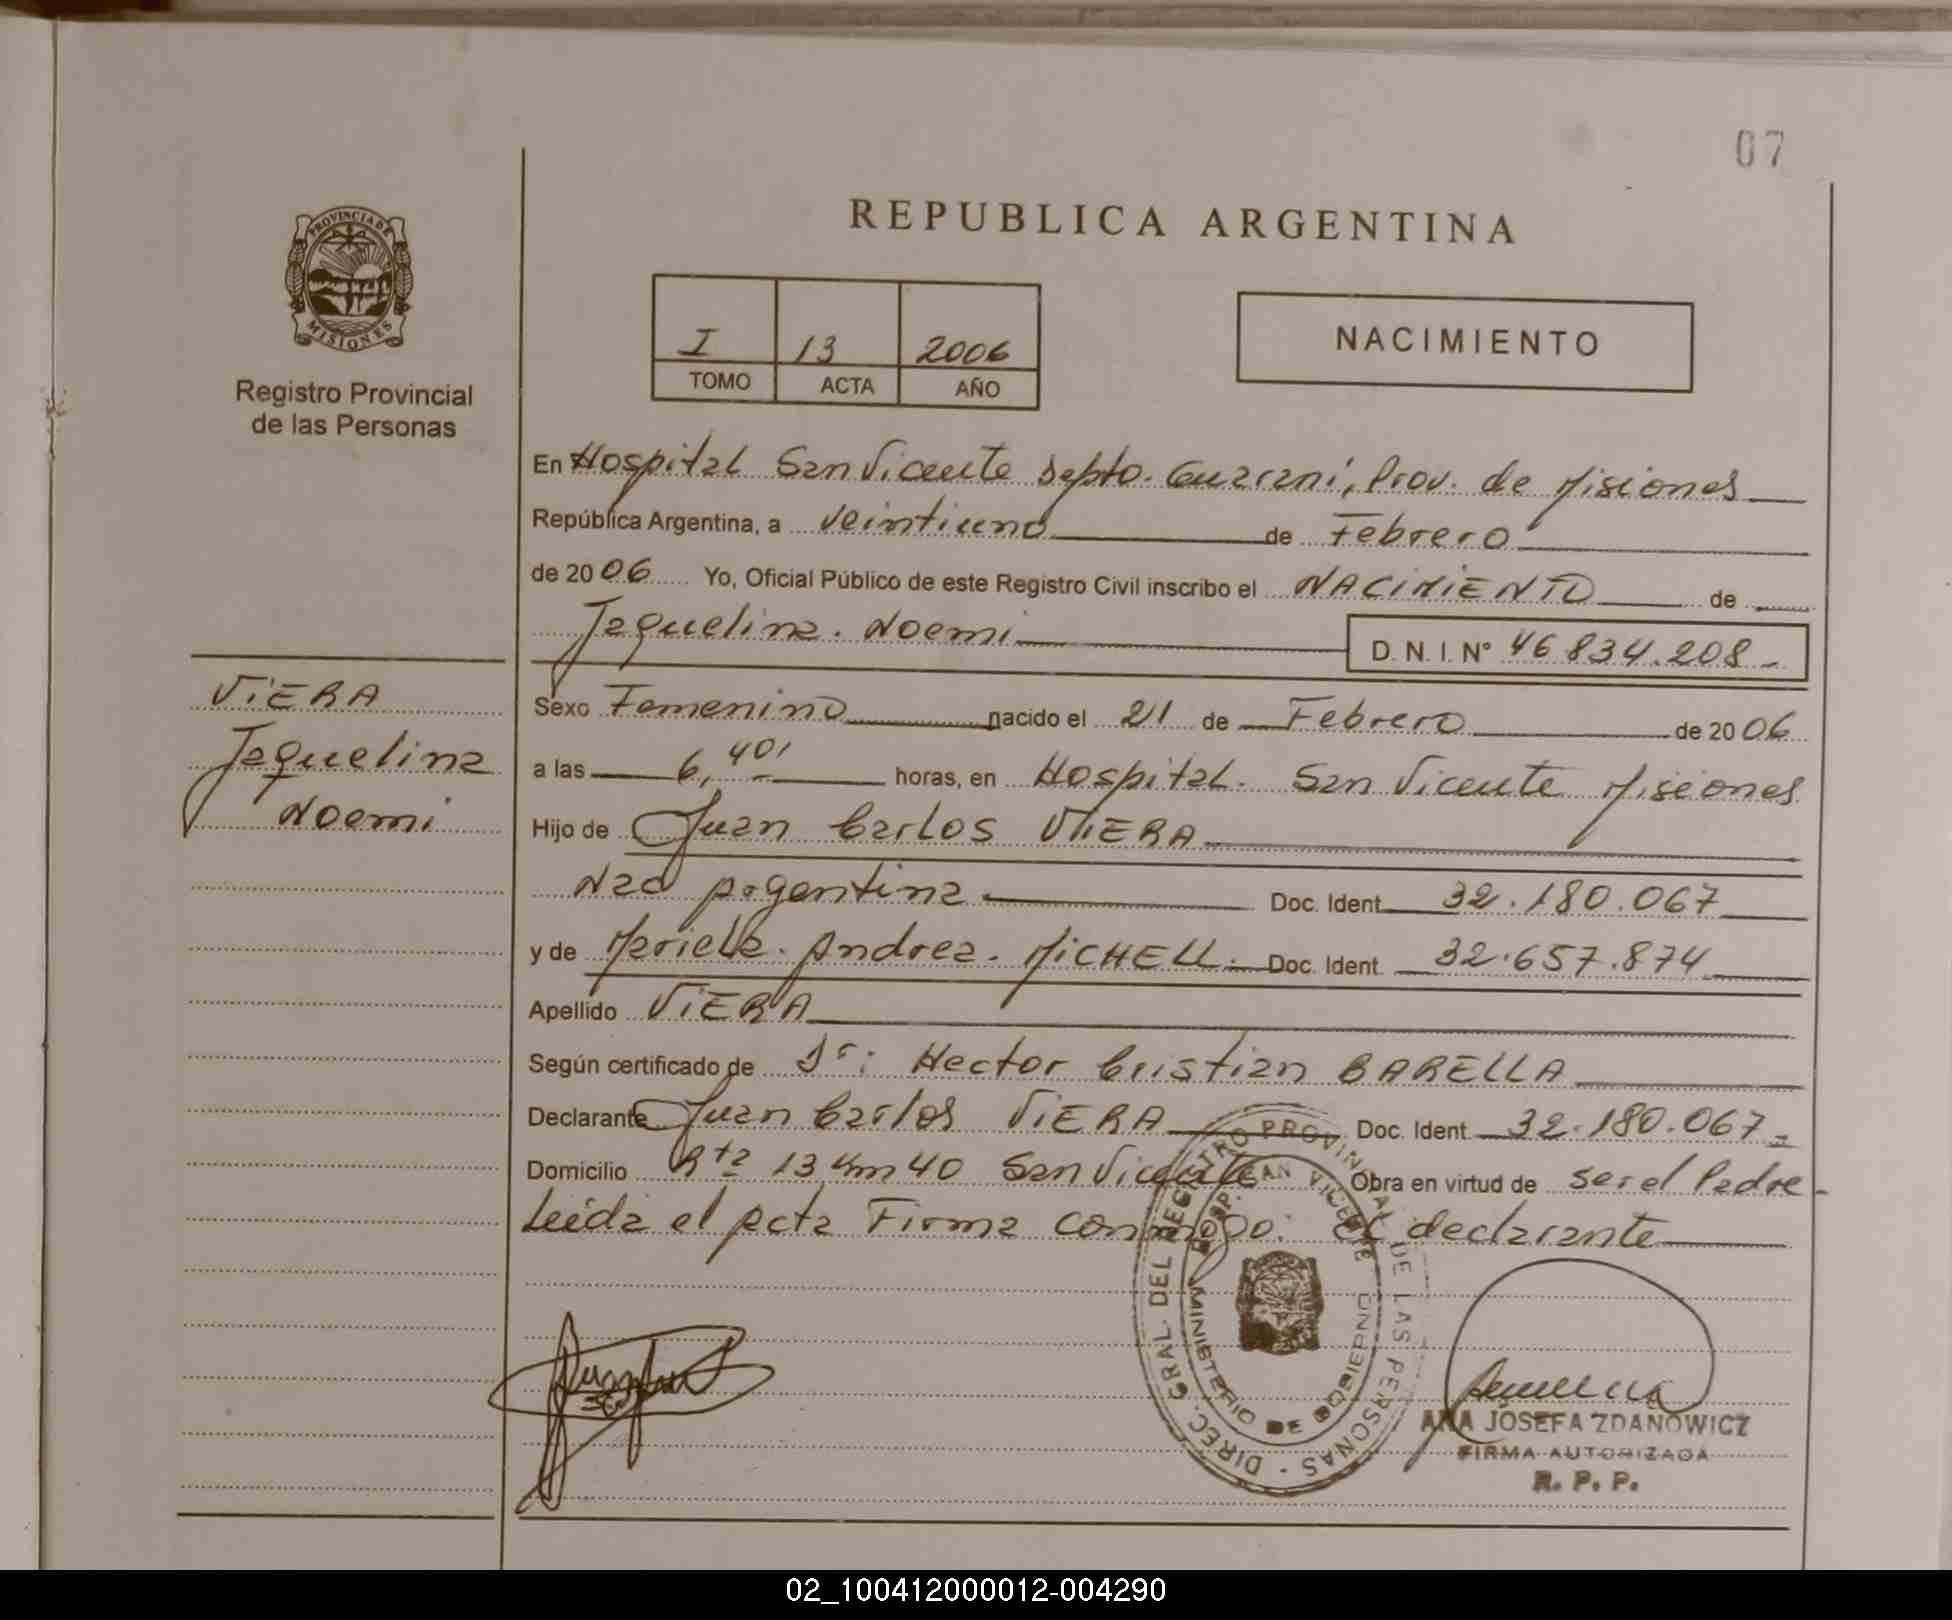 07
REPUBLICA ARGENTINA
PROVINCIA DE
MISIONES
Registro Provincial
de las Personas
I 13 2006
TOMO ACTA AÑO
NACIMIENTO
En Hospital San Vicente Depto. Guaraní, Prov. de Misiones
República Argentina, a veintiuno de Febrero
de 2006 Yo, Oficial Público de este Registro Civil inscribo el NACIMIENTO de
Jaquelina. Noemi D. N. I. N° 46.834.208-
VIERA
Jaquelina
Noemi
Sexo Femenino nacido el 21 de Febrero de 2006
a las 6,40' horas, en Hospital. San Vicente Misiones
Hijo de Juan Carlos VIERA
Nac Argentina Doc. Ident. 32.180.067
y de Mariela. Andrea. MICHELL. Doc. Ident. 32.657.874
Apellido VIERA
Según certificado de Dr: Hector Cristian BARELLA
Declarante Juan Carlos VIERA Doc. Ident. 32.180.067-
Domicilio Rta 13 Km 40 San Vicente Obra en virtud de ser el Padre-
Leída el acta Firma conmigo: El declarante
DIREC. GRAL. DEL REGISTRO PROVINCIAL DE LAS PERSONAS -
HOSP. SAN VICENTE
MINISTERIO DE GOBIERNO
ANA JOSEFA ZDANOWICZ
FIRMA AUTORIZADA
R. P. P.
02_100412000012-004290